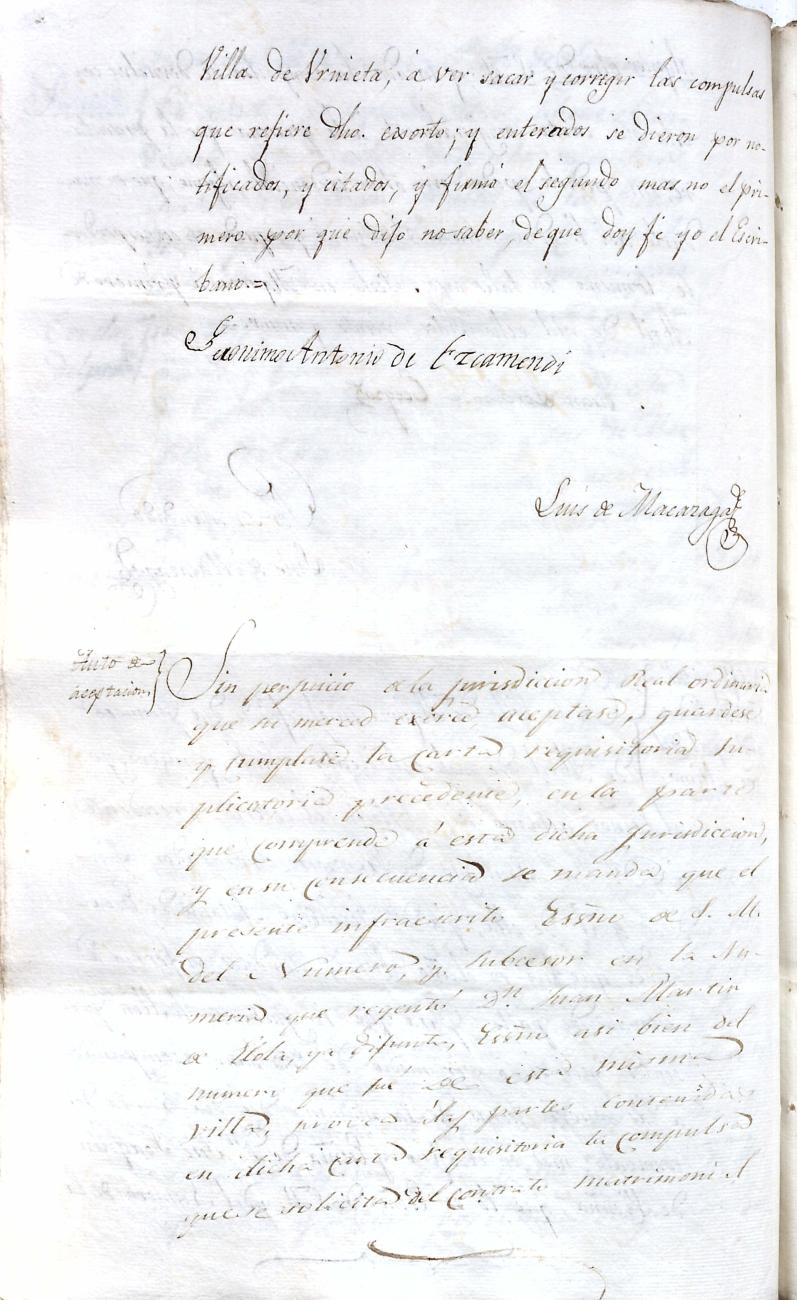 Villa de Vrnieta, á ver sacar y corregir las compulsas
que refiere dho. exorto; y enterados se dieron por no-
tificados, y citados, y firmó el segundo mas no el pri-
mero por que dijo no saber, de que doy fé yo el Escri-
bano.=
Geronimo Antonio de Ezcamendi
Luis de Macazaga
Auto de
aceptacion
Sin perjuicio de la jurisdiccion Real ordinaria
que su merced exerce, aceptase, guardese
y cumplase la carta requisitoria su-
plicatoria precedente, en la parte
que comprende á esta dicha Jurisdiccion,
y en su consecuencia se manda, que el
presente infraescrito Essño de S. M.
del Numero, y subcesor en la Nu-
meria que regentó Dn. Juan Martin
de Elola, ya difunto, Essño asi bien del
numero que fué de esta misma
villa, provea á las partes contenidas
en dicha carta requisitoria la compulsa
que se solicita del contrato matrimonial